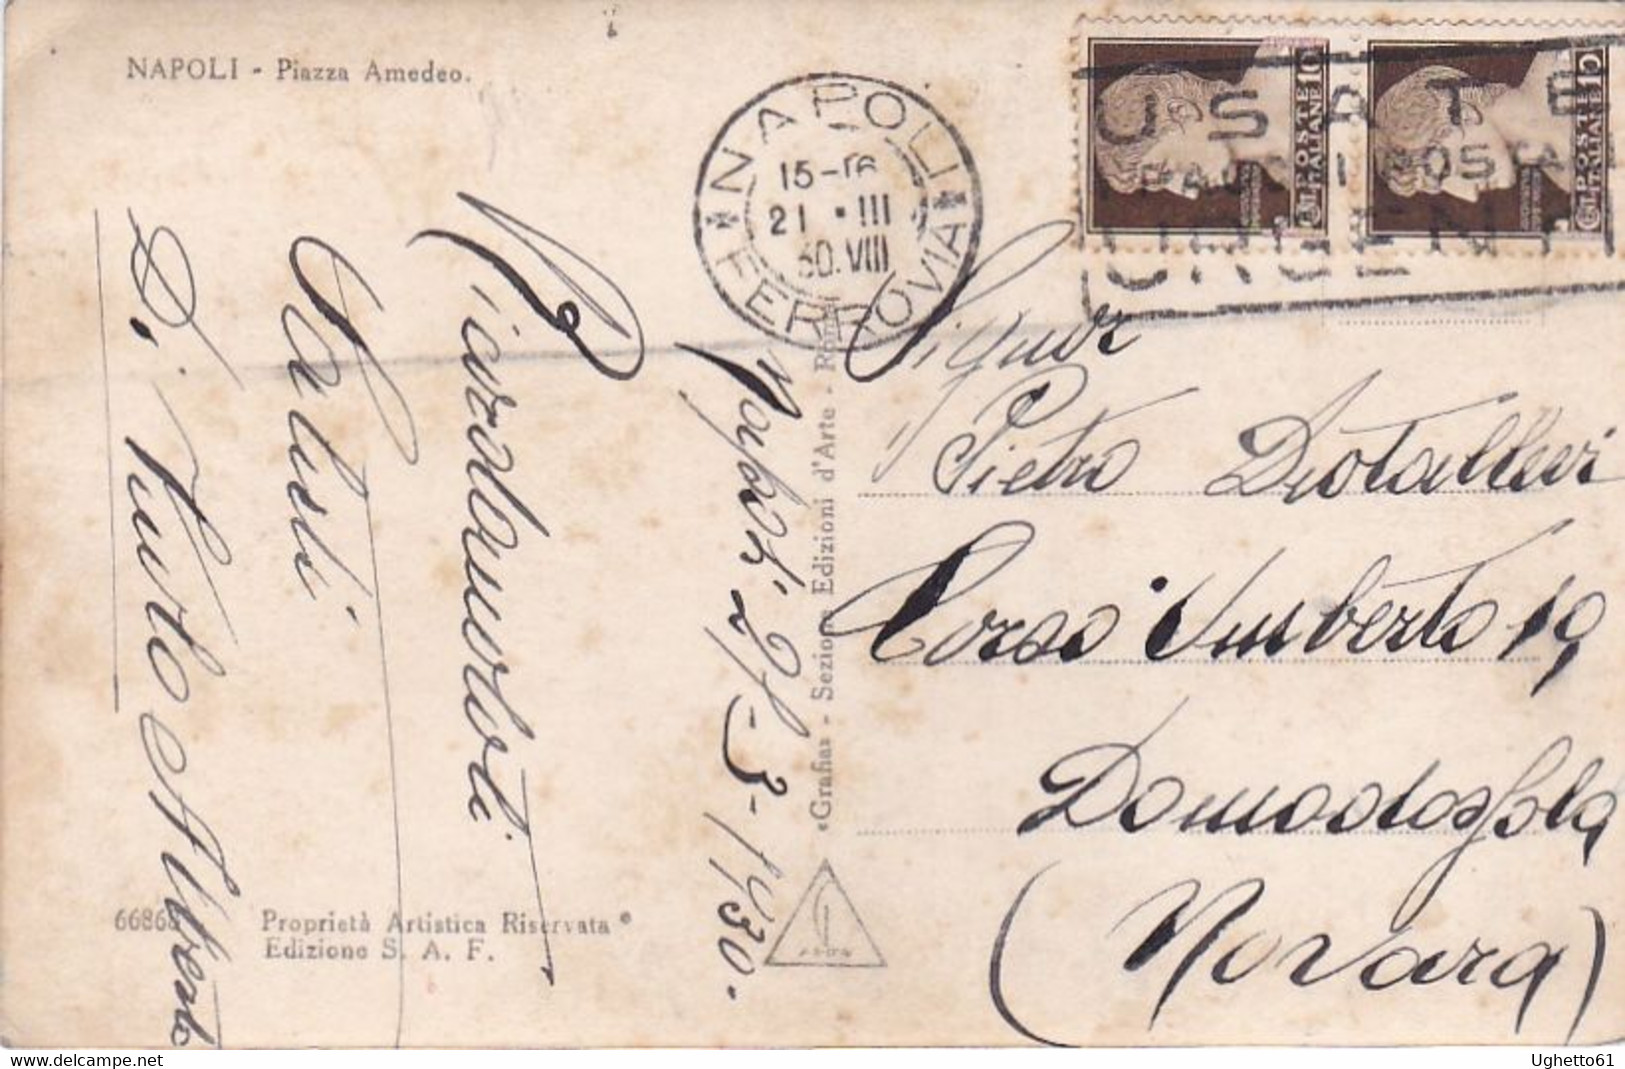 NAPOLI - Piazza Amedeo.
NAPOLI
FERROVIA
15-16
21 • III
30.VIII
POSTE ITALIANE
10
POSTE ITALIANE
10
USATE
POSTA
URGENT
Signor
Pietro Diotallevi
Corso Umberto 19
Domodossola
(Novara)
Napoli 21-3-1930.
Ricordandovi
Saluti
«Grafia» - Sezione Edizioni d'Arte - Roma
66868
Proprietà Artistica Riservata
Edizione S. A. F.
delcampe.net
Ughetto61